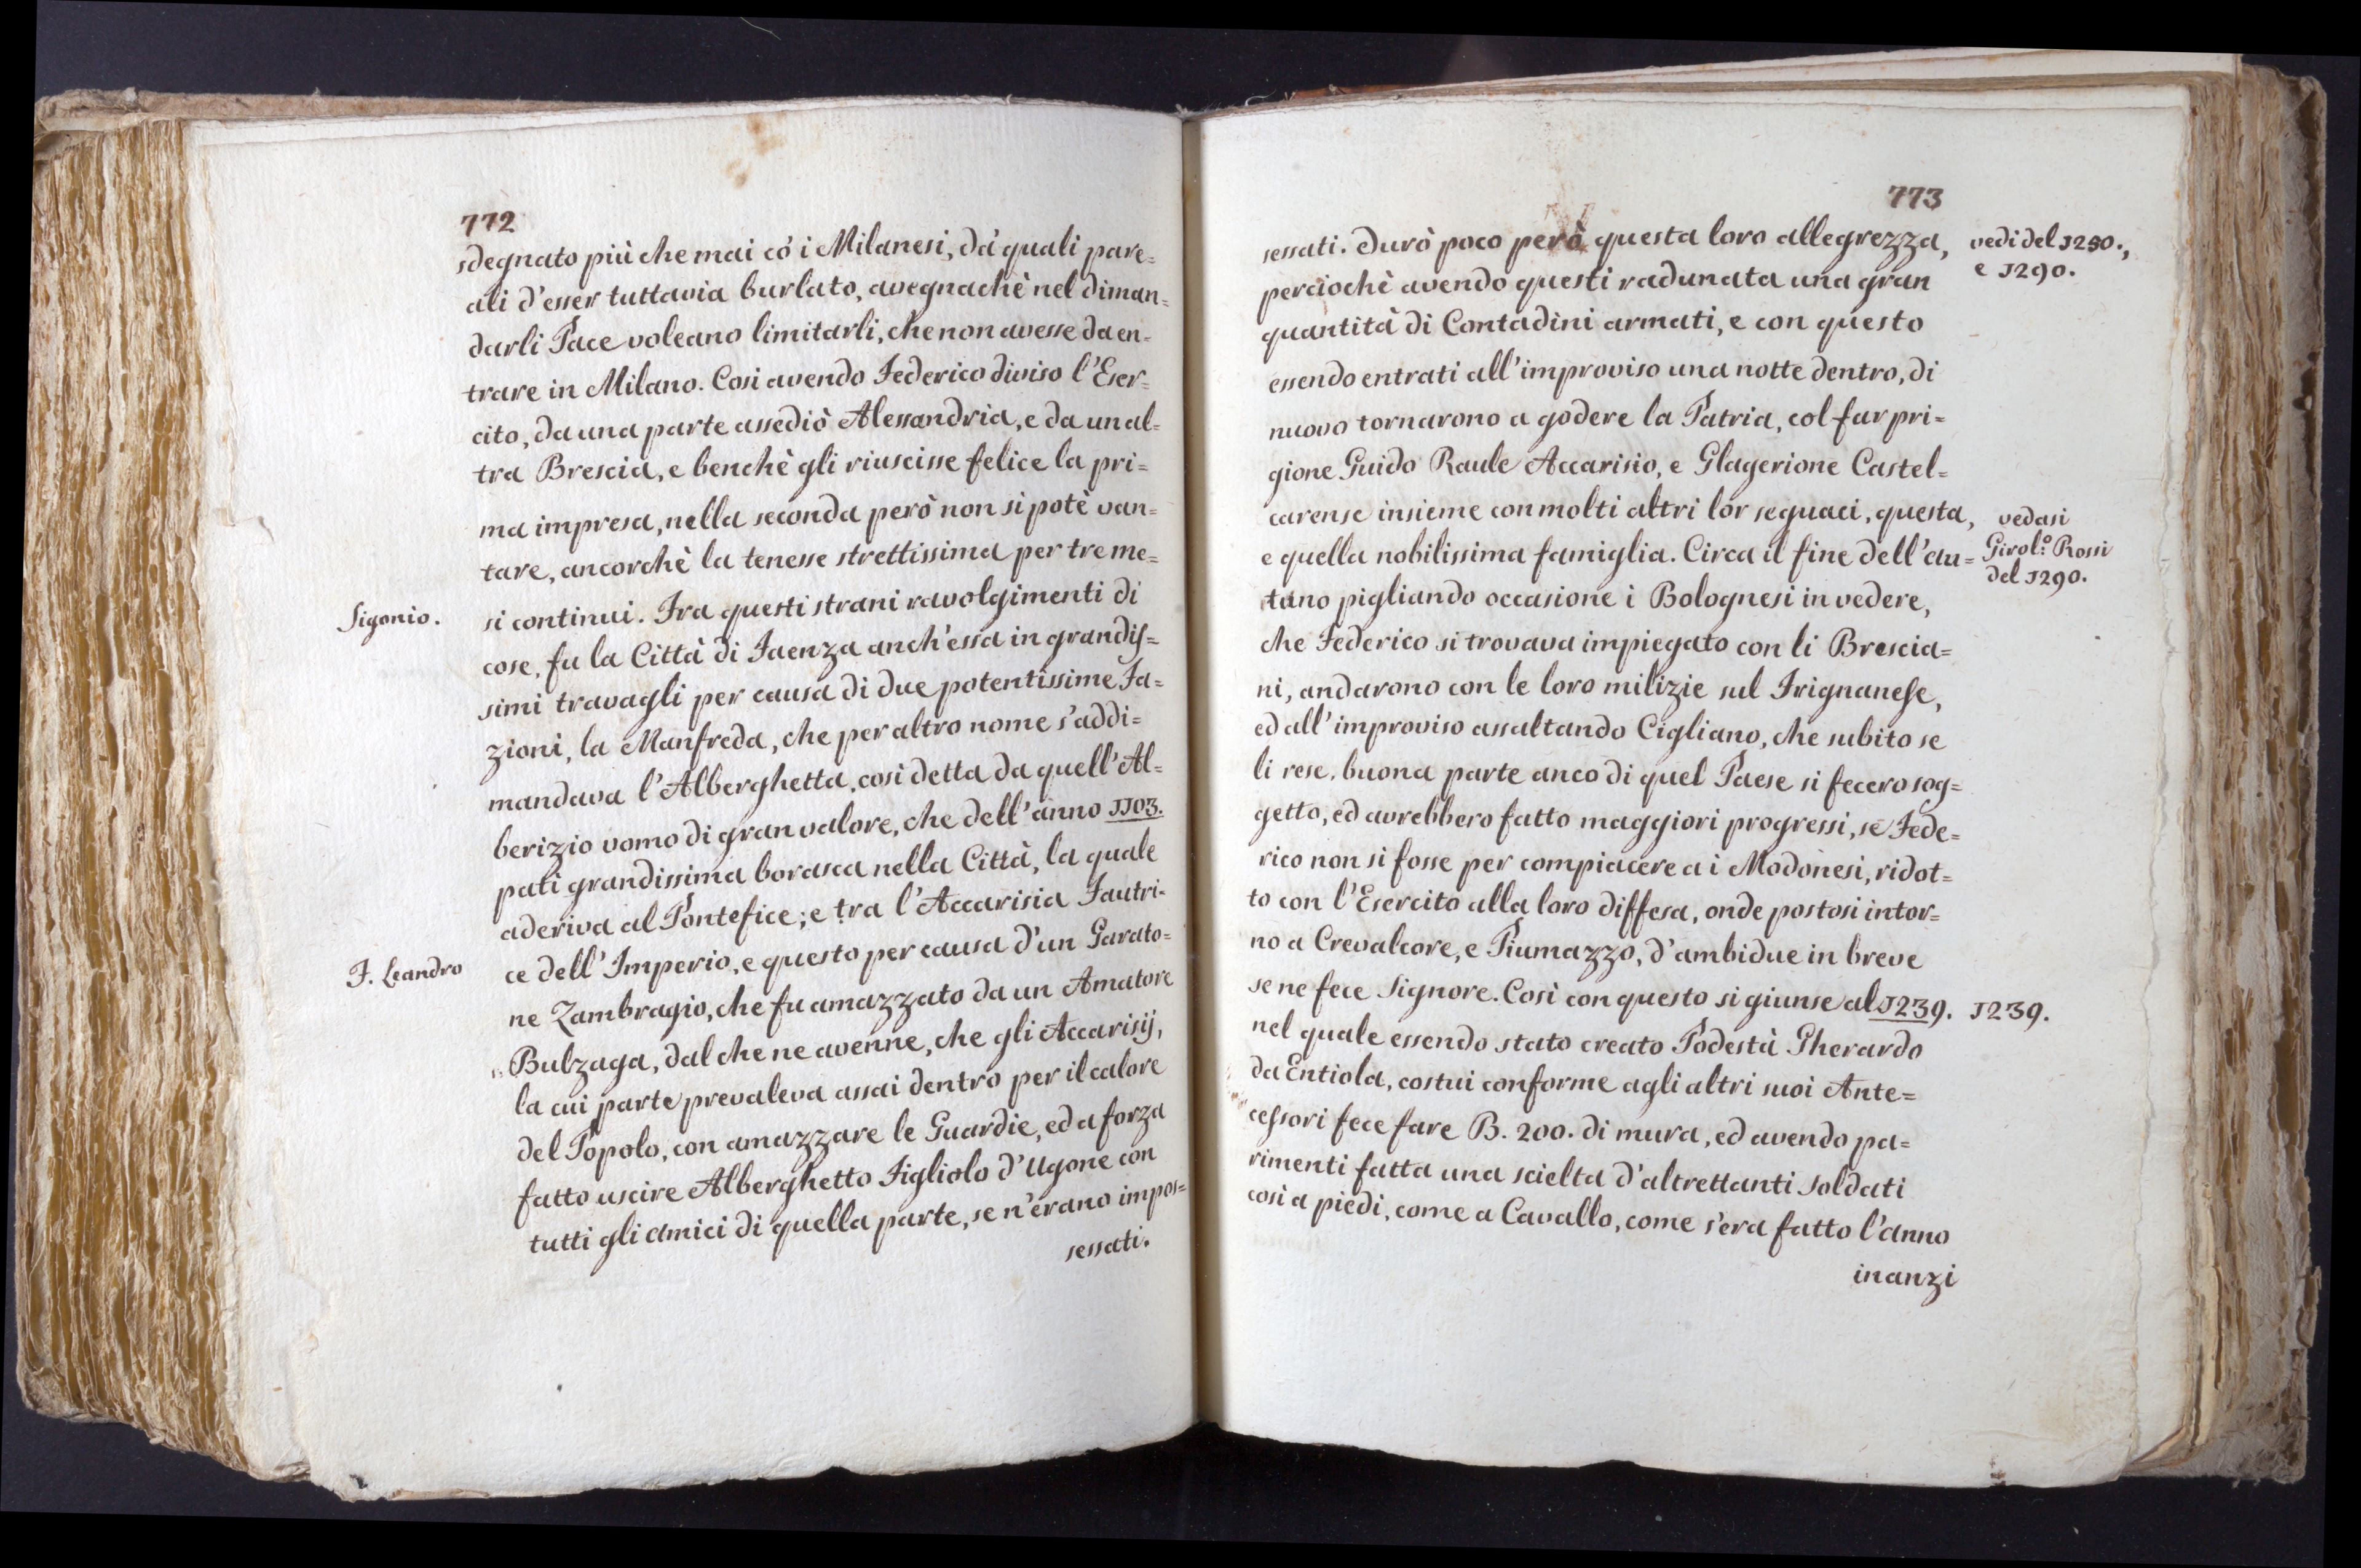 772
sdegnato più che mai có i Milanesi, dà quali pare=
ali d'esser tuttavia burlato, avegnachè nel diman=
darli Pace voleano limitarli, che non avesse da en=
trare in Milano. Cosi avendo Federico diviso l'Eser=
cito, da una parte assediò Alessandria, e da un al=
tra Brescia, e benchè gli riuscisse felice la pri=
ma impresa, nella seconda però non si potè van=
tare, ancorchè la tenesse strettissima per tre me=
Sigonio.
si continui. Fra questi strani ravolgimenti di
cose, fu la Città di Faenza anch'essa in grandis=
simi travagli per causa di due potentissime Fa=
zioni, la Manfreda, che per altro nome s'addi=
mandava l'Alberghetta, così detta da quell'Al=
berizio uomo di gran valore, che dell'anno 1103.
pati grandissima borasca nella Città, la quale
aderiva al Pontefice; e tra l'Accarisia Fautri=
F. Leandro
ce dell'Imperio, e questo per causa d'un Garato=
ne Zambragio, che fu amazzato da un Amatore
Bulzaga, dal che ne avenne, che gli Accarisij,
la cui parte prevaleva assai dentro per il calore
del Popolo, con amazzare le Guardie, ed a forza
fatto uscire Alberghetto Figliolo d'Ugone con
tutti gli amici di quella parte, se n'erano impos=
sessati.
773
sessati. Durò poco però questa loro allegrezza,
vedi del 1250.,
e 1290.
perciochè avendo questi radunata una gran
quantità di Contadini armati, e con questo
essendo entrati all'improviso una notte dentro, di
nuovo tornarono a godere la Patria, col far pri=
gione Guido Raule Accarisio, e Glagerione Castel=
carense insieme con molti altri lor seguaci, questa,
vedasi
Girol.º Rossi
del 1290.
e quella nobilissima famiglia. Circa il fine dell'au=
tuno pigliando occasione i Bolognesi in vedere,
che Federico si trovava impiegato con li Brescia=
ni, andarono con le loro milizie sul Frignanese,
ed all'improviso assaltando Cigliano, che subito se
li rese, buona parte anco di quel Paese si fecero sog=
getto, ed avrebbero fatto maggiori progressi, se Fede=
rico non si fosse per compiacere a i Modonesi, ridot=
to con l'Esercito alla loro diffesa, onde postosi intor=
no a Crevalcore, e Piumazzo, d'ambidue in breve
se ne fece Signore. Così con questo si giunse al 1239.
1239.
nel quale essendo stato creato Podestà Gherardo
da Entiola, costui conforme agli altri suoi Ante=
cessori fece fare B. 200. di mura, ed avendo pa=
rimenti fatta una scielta d'altrettanti Soldati
così a piedi, come a Cavallo, come s'era fatto l'anno
inanzi